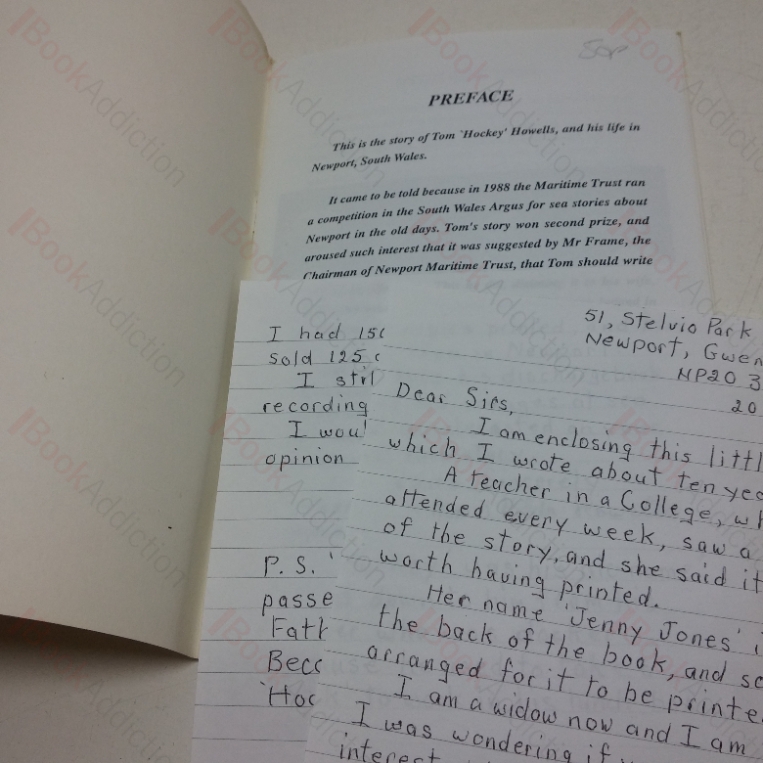 50p
PREFACE
This is the story of Tom `Hockey' Howells, and his life in
Newport, South Wales.
It came to be told because in 1988 the Maritime Trust ran
a competition in the South Wales Argus for sea stories about
Newport in the old days. Tom's story won second prize, and
aroused such interest that it was suggested by Mr Frame, the
Chairman of Newport Maritime Trust, that Tom should write
I had 150
sold 125 c
I stil
recording
I woul
opinion
P.S. '
passe
Fath
Becc
'Hoc
51, Stelvio Park
Newport, Gwen
NP20 3
20
Dear Sirs,
I am enclosing this littl
which I wrote about ten yea
A teacher in a College, wh
attended every week, saw a
of the story, and she said it
worth having printed.
Her name 'Jenny Jones' i
the back of the book, and so
arranged for it to be printe
I am a widow now and I am
I was wondering if y
interest
BookAddiction